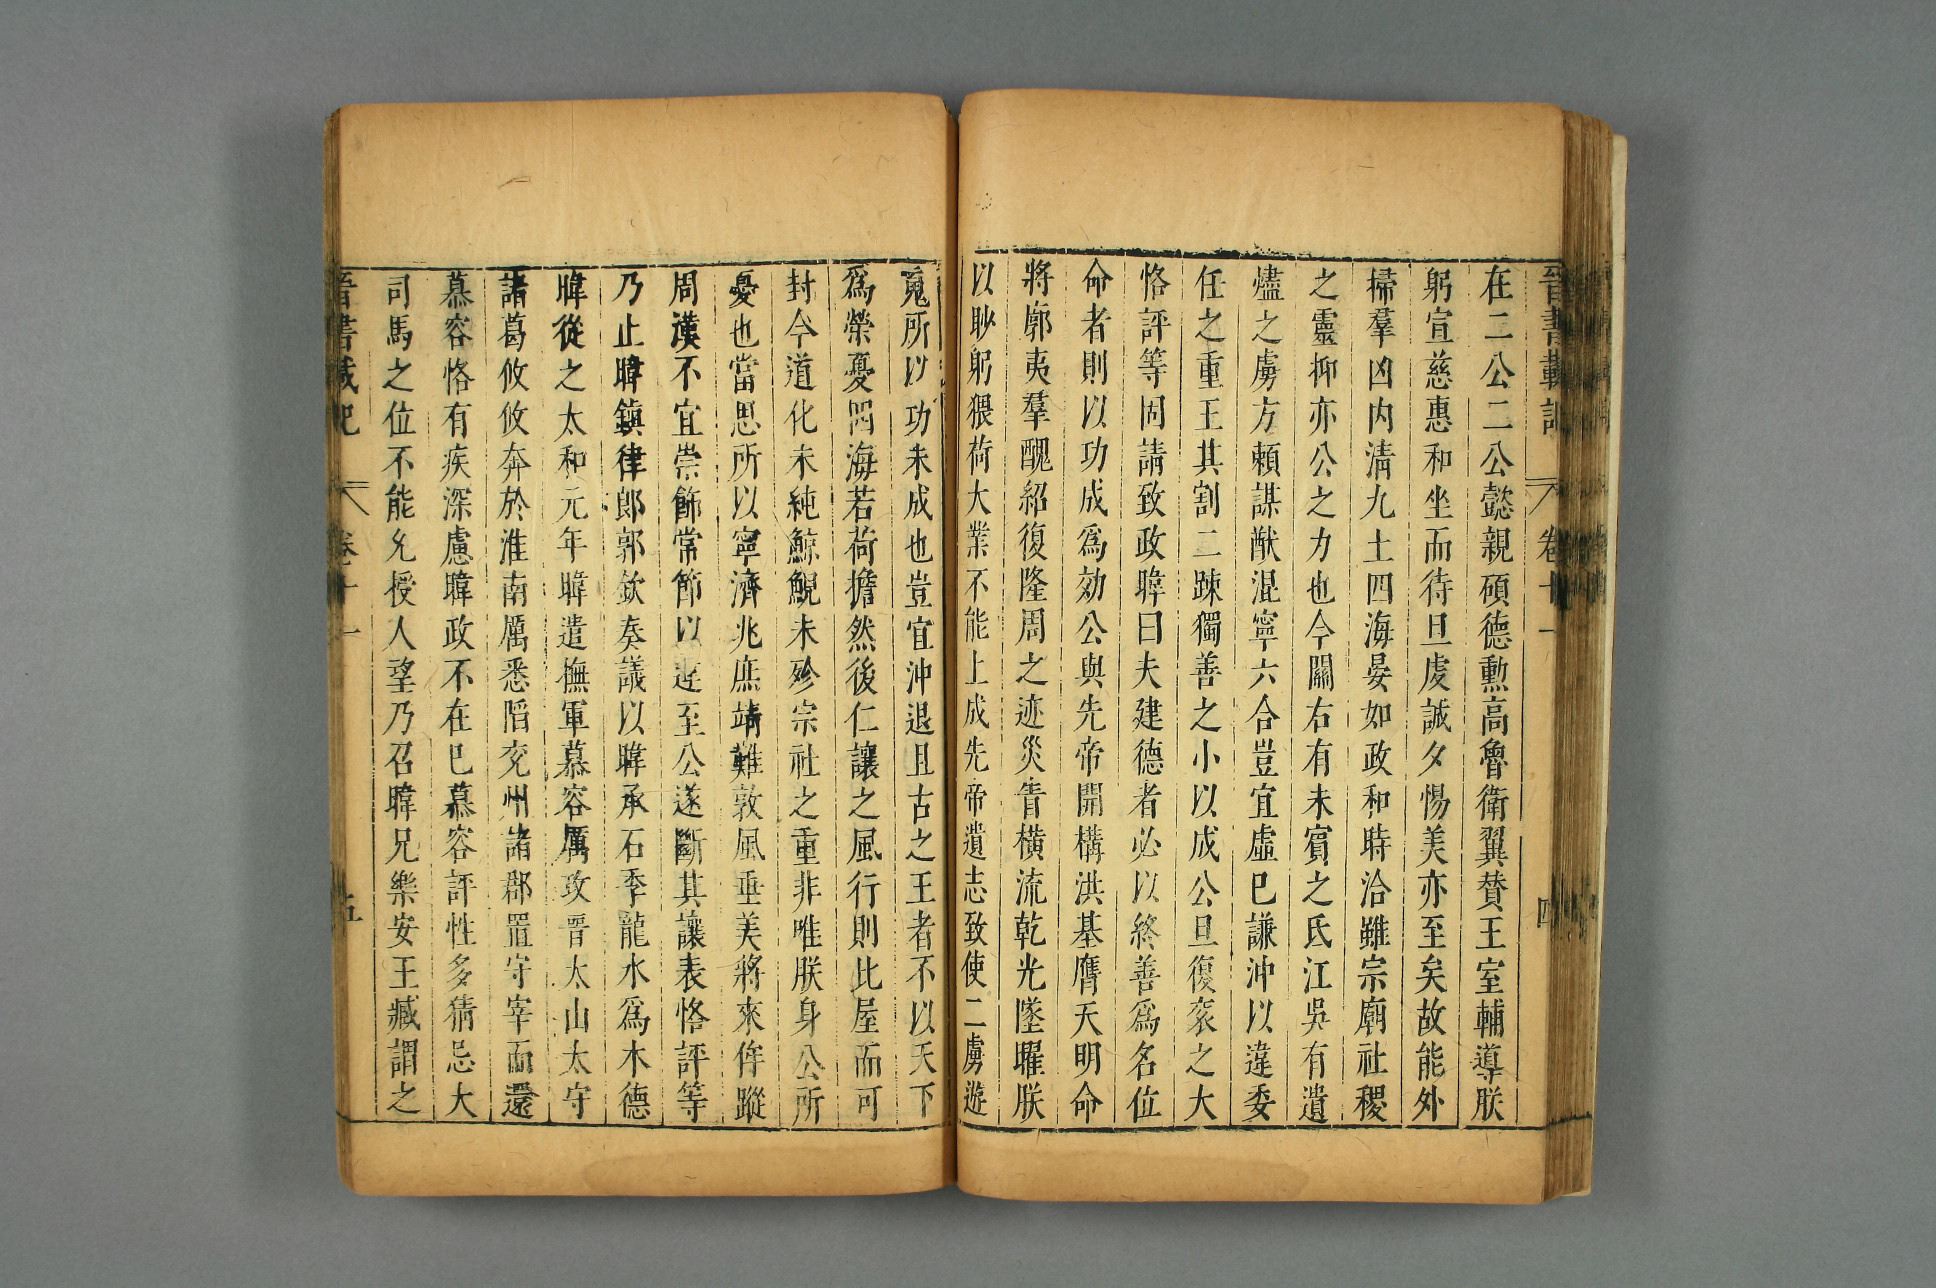 晉書載記 卷十一 四
在二公二公懿親碩德勲高魯衛翼賛王室輔導朕
躬宣慈惠和坐而待旦虔誠夕惕美亦至矣故能外
掃羣凶内清九土四海晏如政和時洽雖宗廟社稷
之靈抑亦公之力也今關右有未賓之氐江吳有遺
燼之虜方賴謀猷混寧六合豈宜虛巳謙沖以違委
任之重王其割二疎獨善之小以成公旦復衮之大
恪評等固請致政暐曰夫建德者必以終善爲名位
命者則以功成爲効公與先帝開構洪基膺天明命
將廓夷羣醜紹復隆周之迹災眚橫流乾光墜曜朕
以眇躬猥荷大業不能上成先帝遺志致使二虜遊
䰟所以功未成也豈宜沖退且古之王者不以天下
爲榮憂四海若荷擔然後仁讓之風行則比屋而可
封今道化未純鯨鯢未殄宗社之重非唯朕身公所
憂也當思所以寧濟兆庶靖難敦風垂美將來侔蹤
周漢不宜崇飾常節以違至公遂斷其讓表恪評等
乃止暐鎮律郎郭欽奏議以暐承石季龍水爲木德
暐從之太和元年暐遣撫軍慕容厲攻晉太山太守
諸葛攸攸奔於淮南厲悉陷兖州諸郡置守宰而還
慕容恪有疾深慮暐政不在巳慕容評性多猜忌大
司馬之位不能允授人望乃召暐兄樂安王臧謂之
晉書載記 卷十一 五